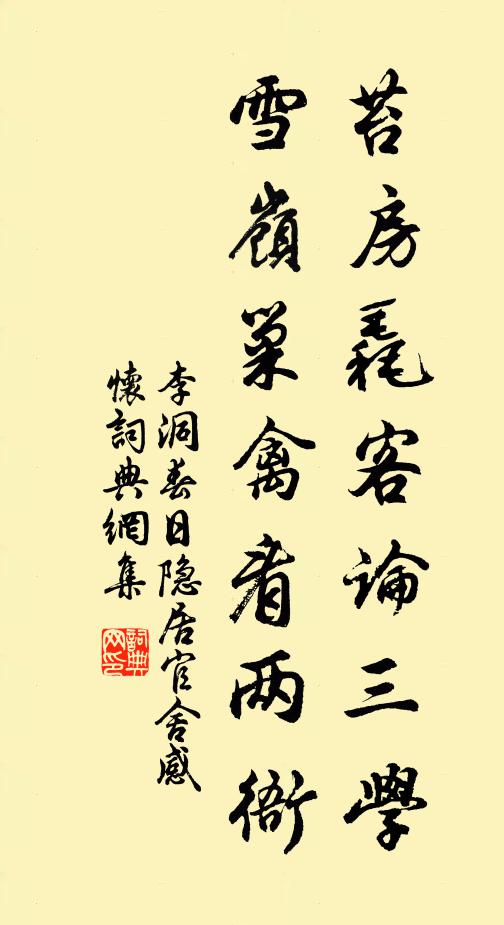 苔房毳客論三學
雪嶺巢禽看兩衙
李洞春日隐居官舍感
懷詞典網集
詞典
网印